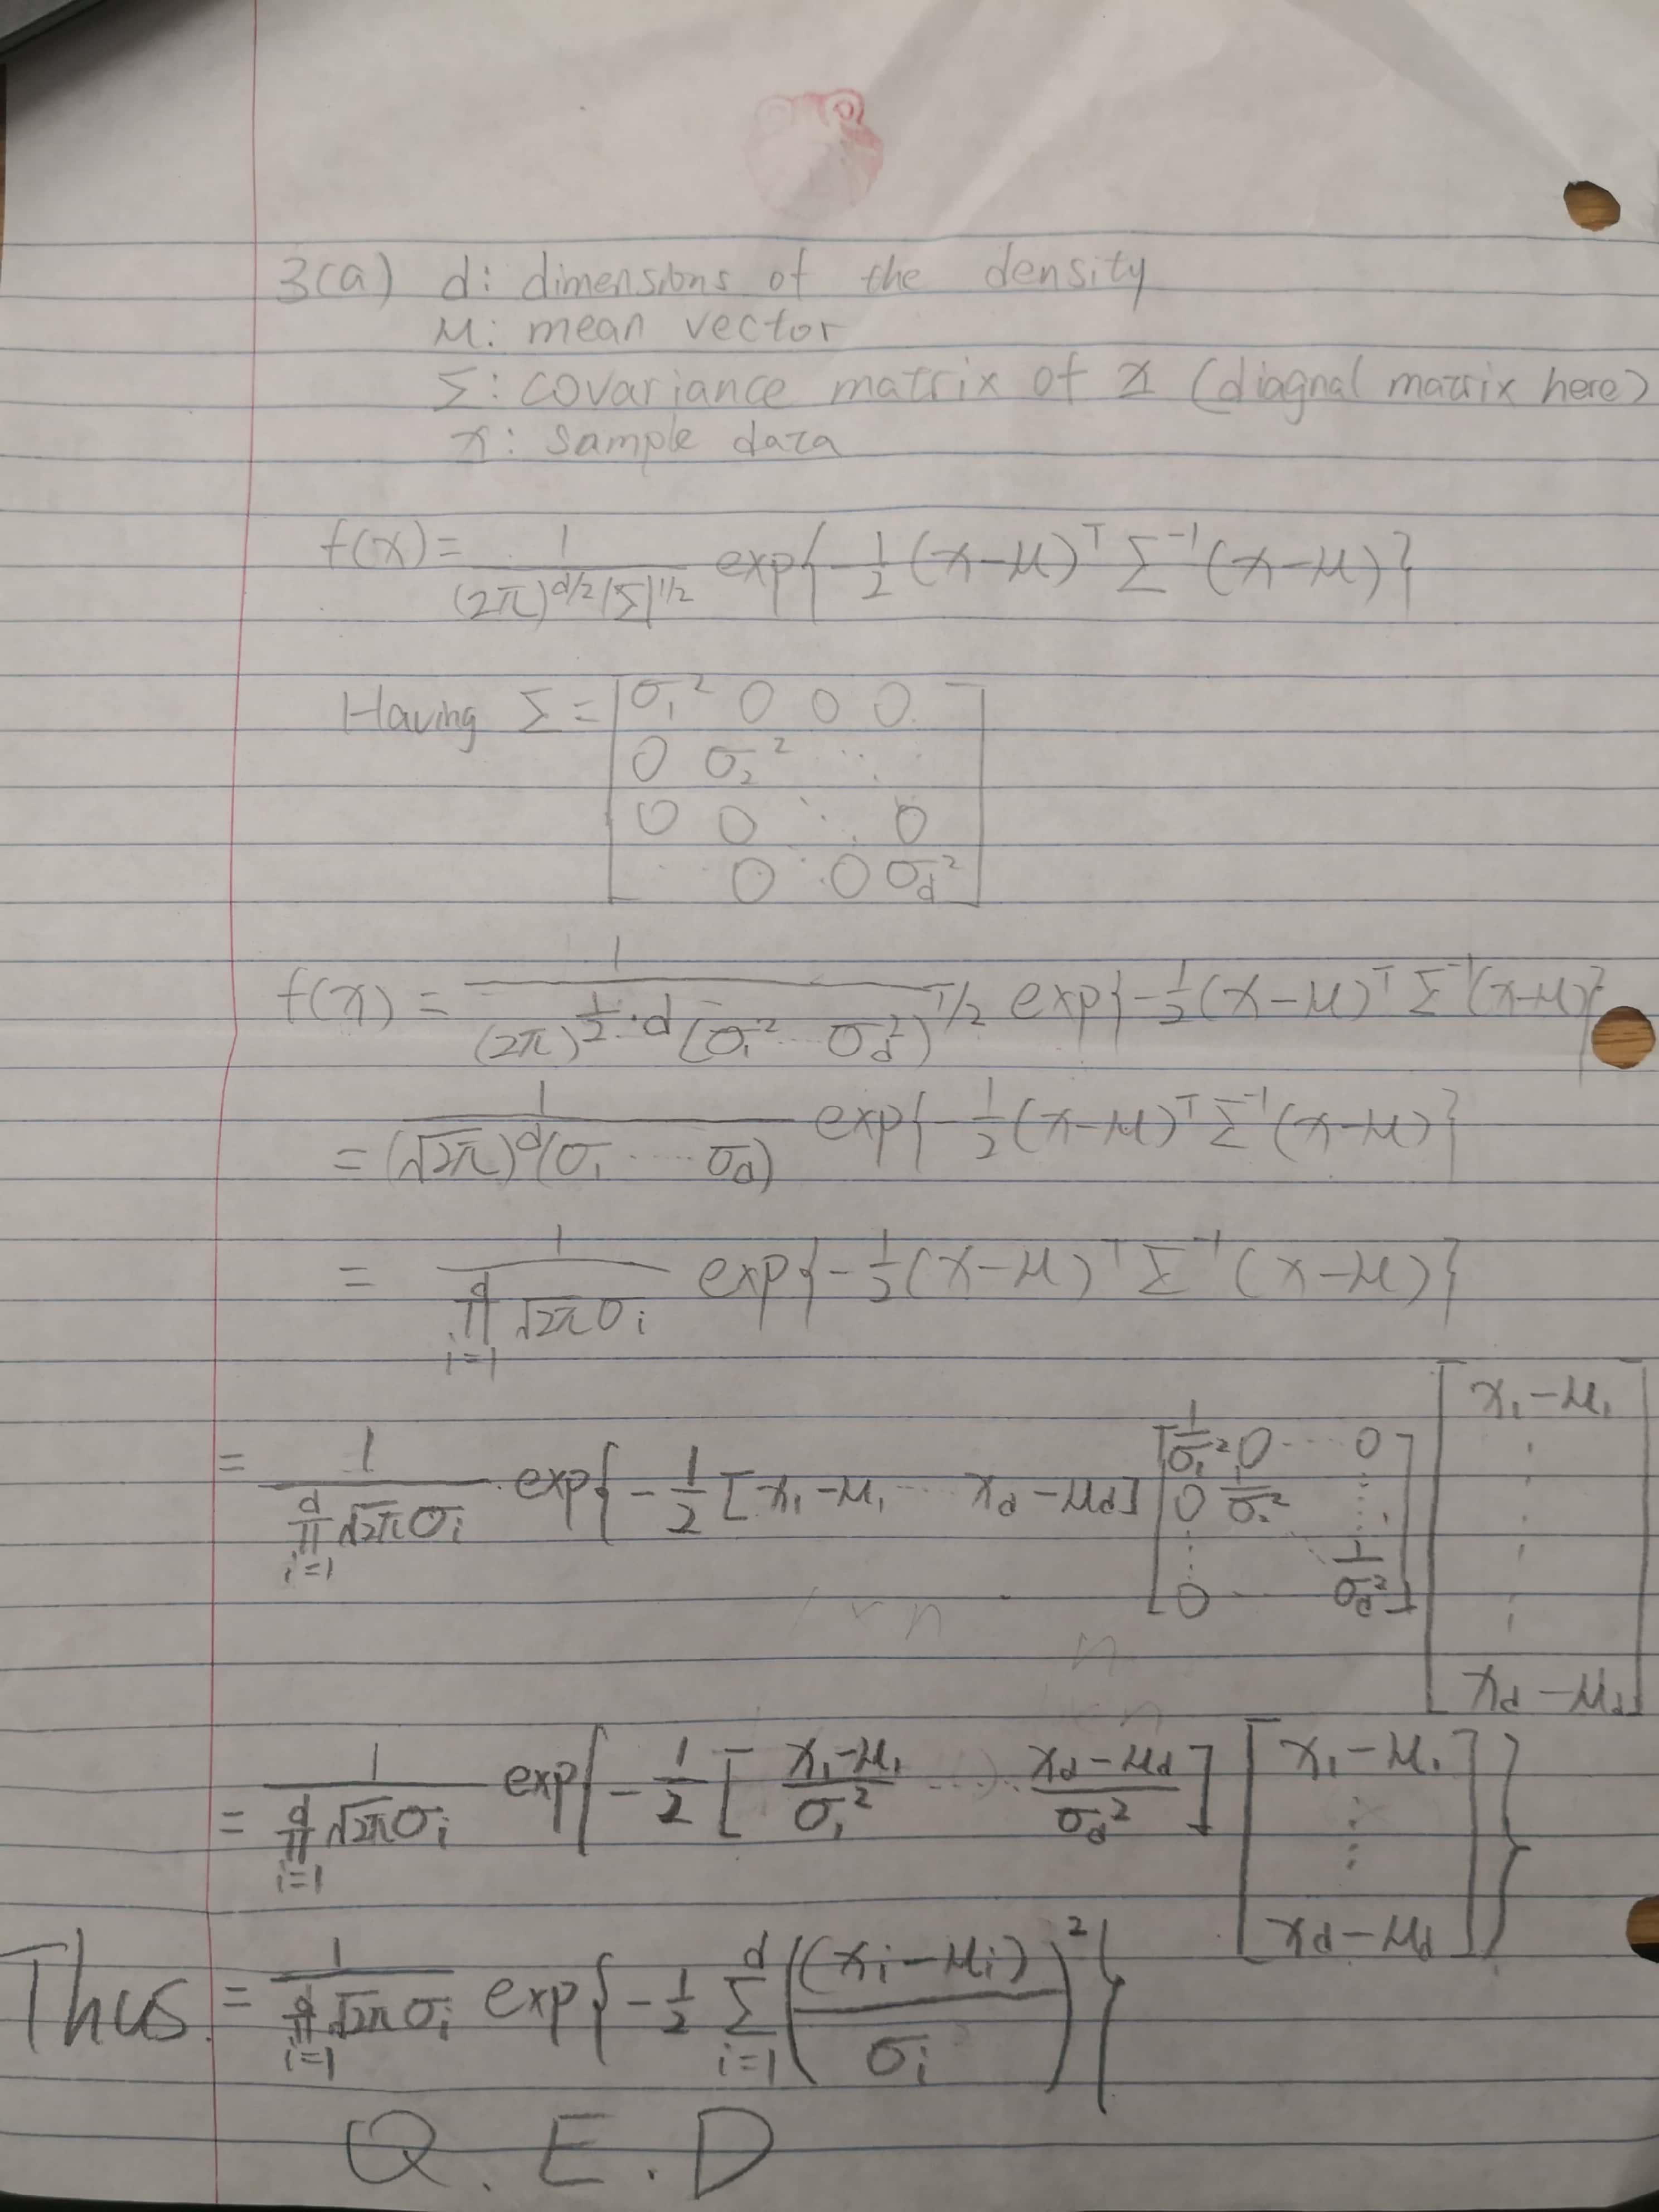 3(a) d: dimensions of the density
μ: mean vector
Σ: covariance matrix of x (diagnal matrix here)
x: sample data
f(x) = 1 / ((2π)^{d/2} |Σ|^{1/2}) exp{-1/2 (x-μ)^T Σ^{-1} (x-μ)}
Having Σ = [σ₁² 0 0 0
0 σ₂² ⋱
0 0 ⋱ 0
0 0 σ_d²]
f(x) = 1 / ((2π)^{1/2·d} (σ₁² ... σ_d²)^{1/2}) exp{-1/2 (x-μ)^T Σ^{-1} (x-μ)}
= 1 / ((√2π)^d (σ₁ ... σ_d)) exp{-1/2 (x-μ)^T Σ^{-1} (x-μ)}
= 1 / (∏_{i=1}^d √2π σ_i) exp{-1/2 (x-μ)^T Σ^{-1} (x-μ)}
= 1 / (∏_{i=1}^d √2π σ_i) · exp{-1/2 [x₁-μ₁ ... x_d-μ_d] [1/σ₁² 0 ... 0
0 1/σ₂² ⋮
⋮ ⋱
0 ... 1/σ_d²] [x₁-μ₁
⋮
x_d-μ_d]
= 1 / (∏_{i=1}^d √2π σ_i) exp{-1/2 [(x₁-μ₁)/σ₁² ... (x_d-μ_d)/σ_d²] [x₁-μ₁
⋮
x_d-μ_d]}
Thus = 1 / (∏_{i=1}^d √2π σ_i) exp{-1/2 Σ_{i=1}^d ((x_i-μ_i)/σ_i)²}
Q.E.D